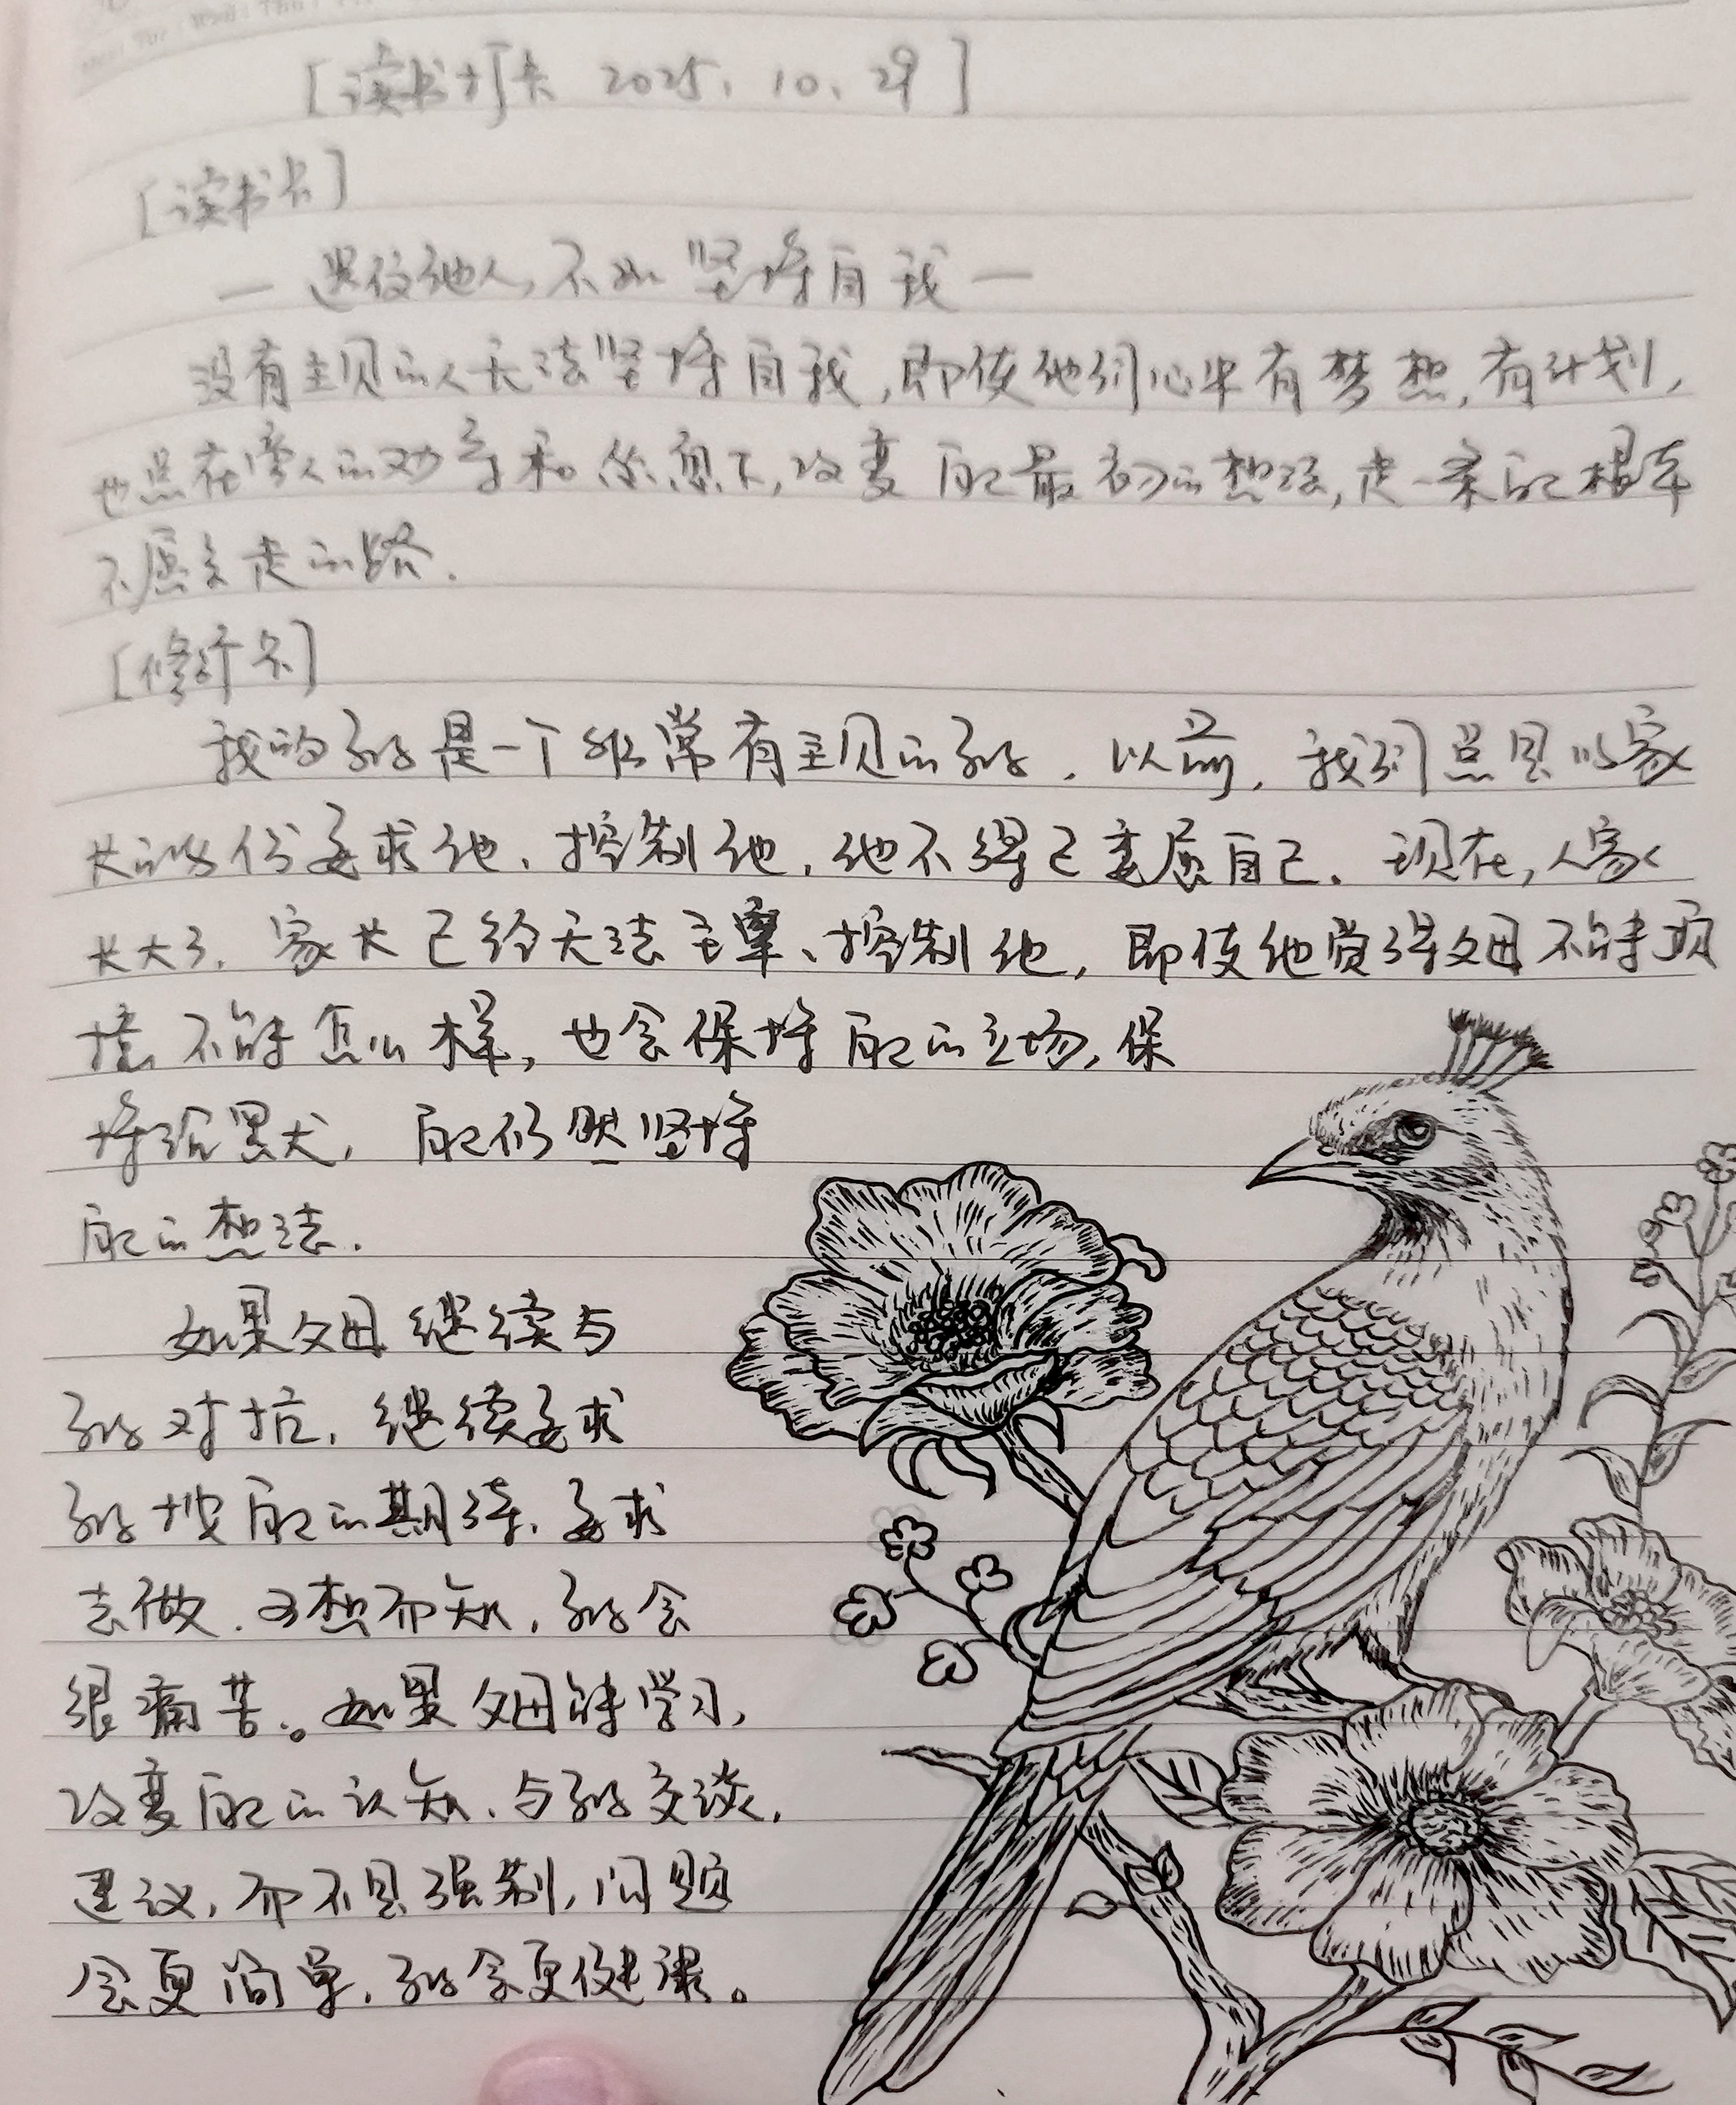 [读书打卡 2025.10.29]
[读书卡]
— 迎合他人,不如坚持自我 —
没有主见的人无法坚持自我,即使他们心中有梦想,有计划,
也总在旁人的劝导和怂恿下,改变自己最初的想法,走一条自己根本
不愿意走的路.
[修行卡]
我的孩子是一个非常有主见的孩子.以前,我们总是以家
长的身份要求他、控制他,他不得已委屈自己.现在,人家
长大了.家长已经无法主宰、控制他,即使他觉得父母不能顶
撞、不能怎么样,也会保持自己的立场,保
持沉默,自己仍然坚持
自己的想法.
如果父母继续与
孩子对抗,继续要求
孩子按自己的期待、要求
去做.可想而知,孩子会
很痛苦。如果父母能学习,
改变自己的认知、与孩子交谈,
建议,而不是强制,问题
会更简单,孩子会更健康。